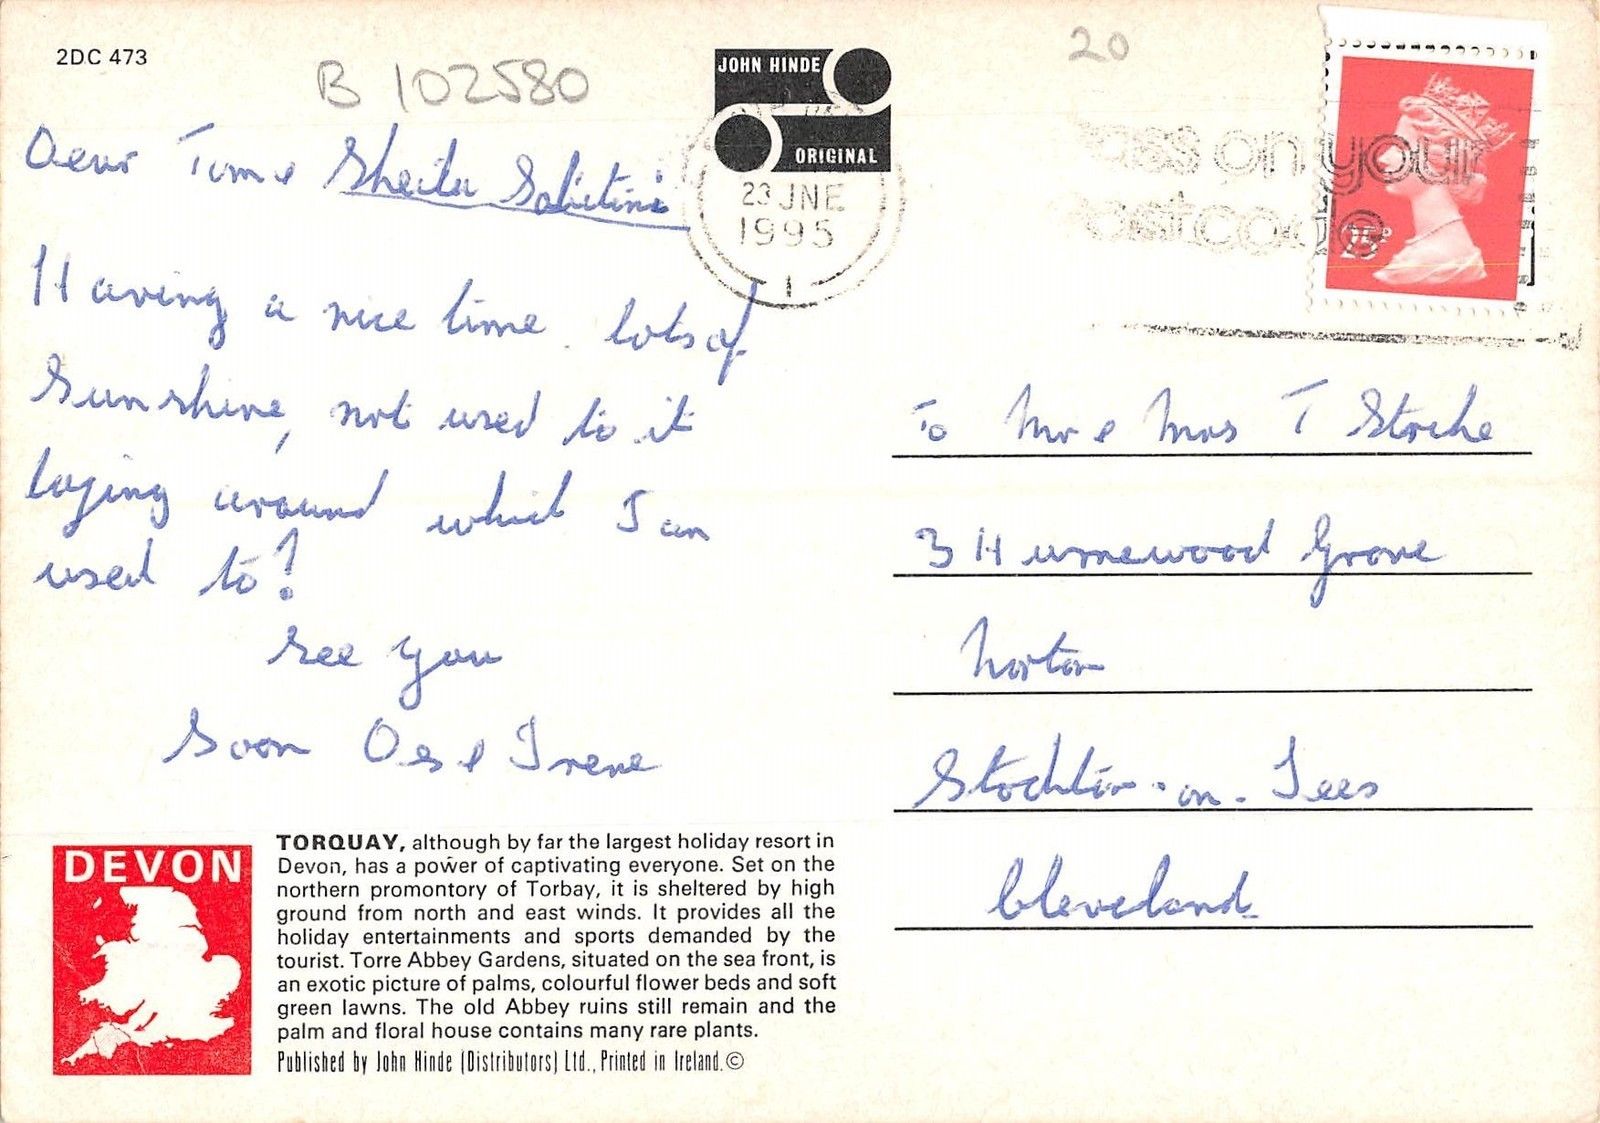 2DC 473
B 102580
20
JOHN HINDE
ORIGINAL
23 JNE
1995
1
ass on your
ostcode
25P
Dear Tom & Sheila
Having a nice time. lots of
Sunshine, not used to it
laying around which I am
used to!
See you
Soon Des & Irene
To Mr & Mrs T
3 Hurnewood Grove
Norton
Stockton-on-Tees
Cleveland
DEVON
TORQUAY, although by far the largest holiday resort in
Devon, has a power of captivating everyone. Set on the
northern promontory of Torbay, it is sheltered by high
ground from north and east winds. It provides all the
holiday entertainments and sports demanded by the
tourist. Torre Abbey Gardens, situated on the sea front, is
an exotic picture of palms, colourful flower beds and soft
green lawns. The old Abbey ruins still remain and the
palm and floral house contains many rare plants.
Published by John Hinde (Distributors) Ltd., Printed in Ireland.©